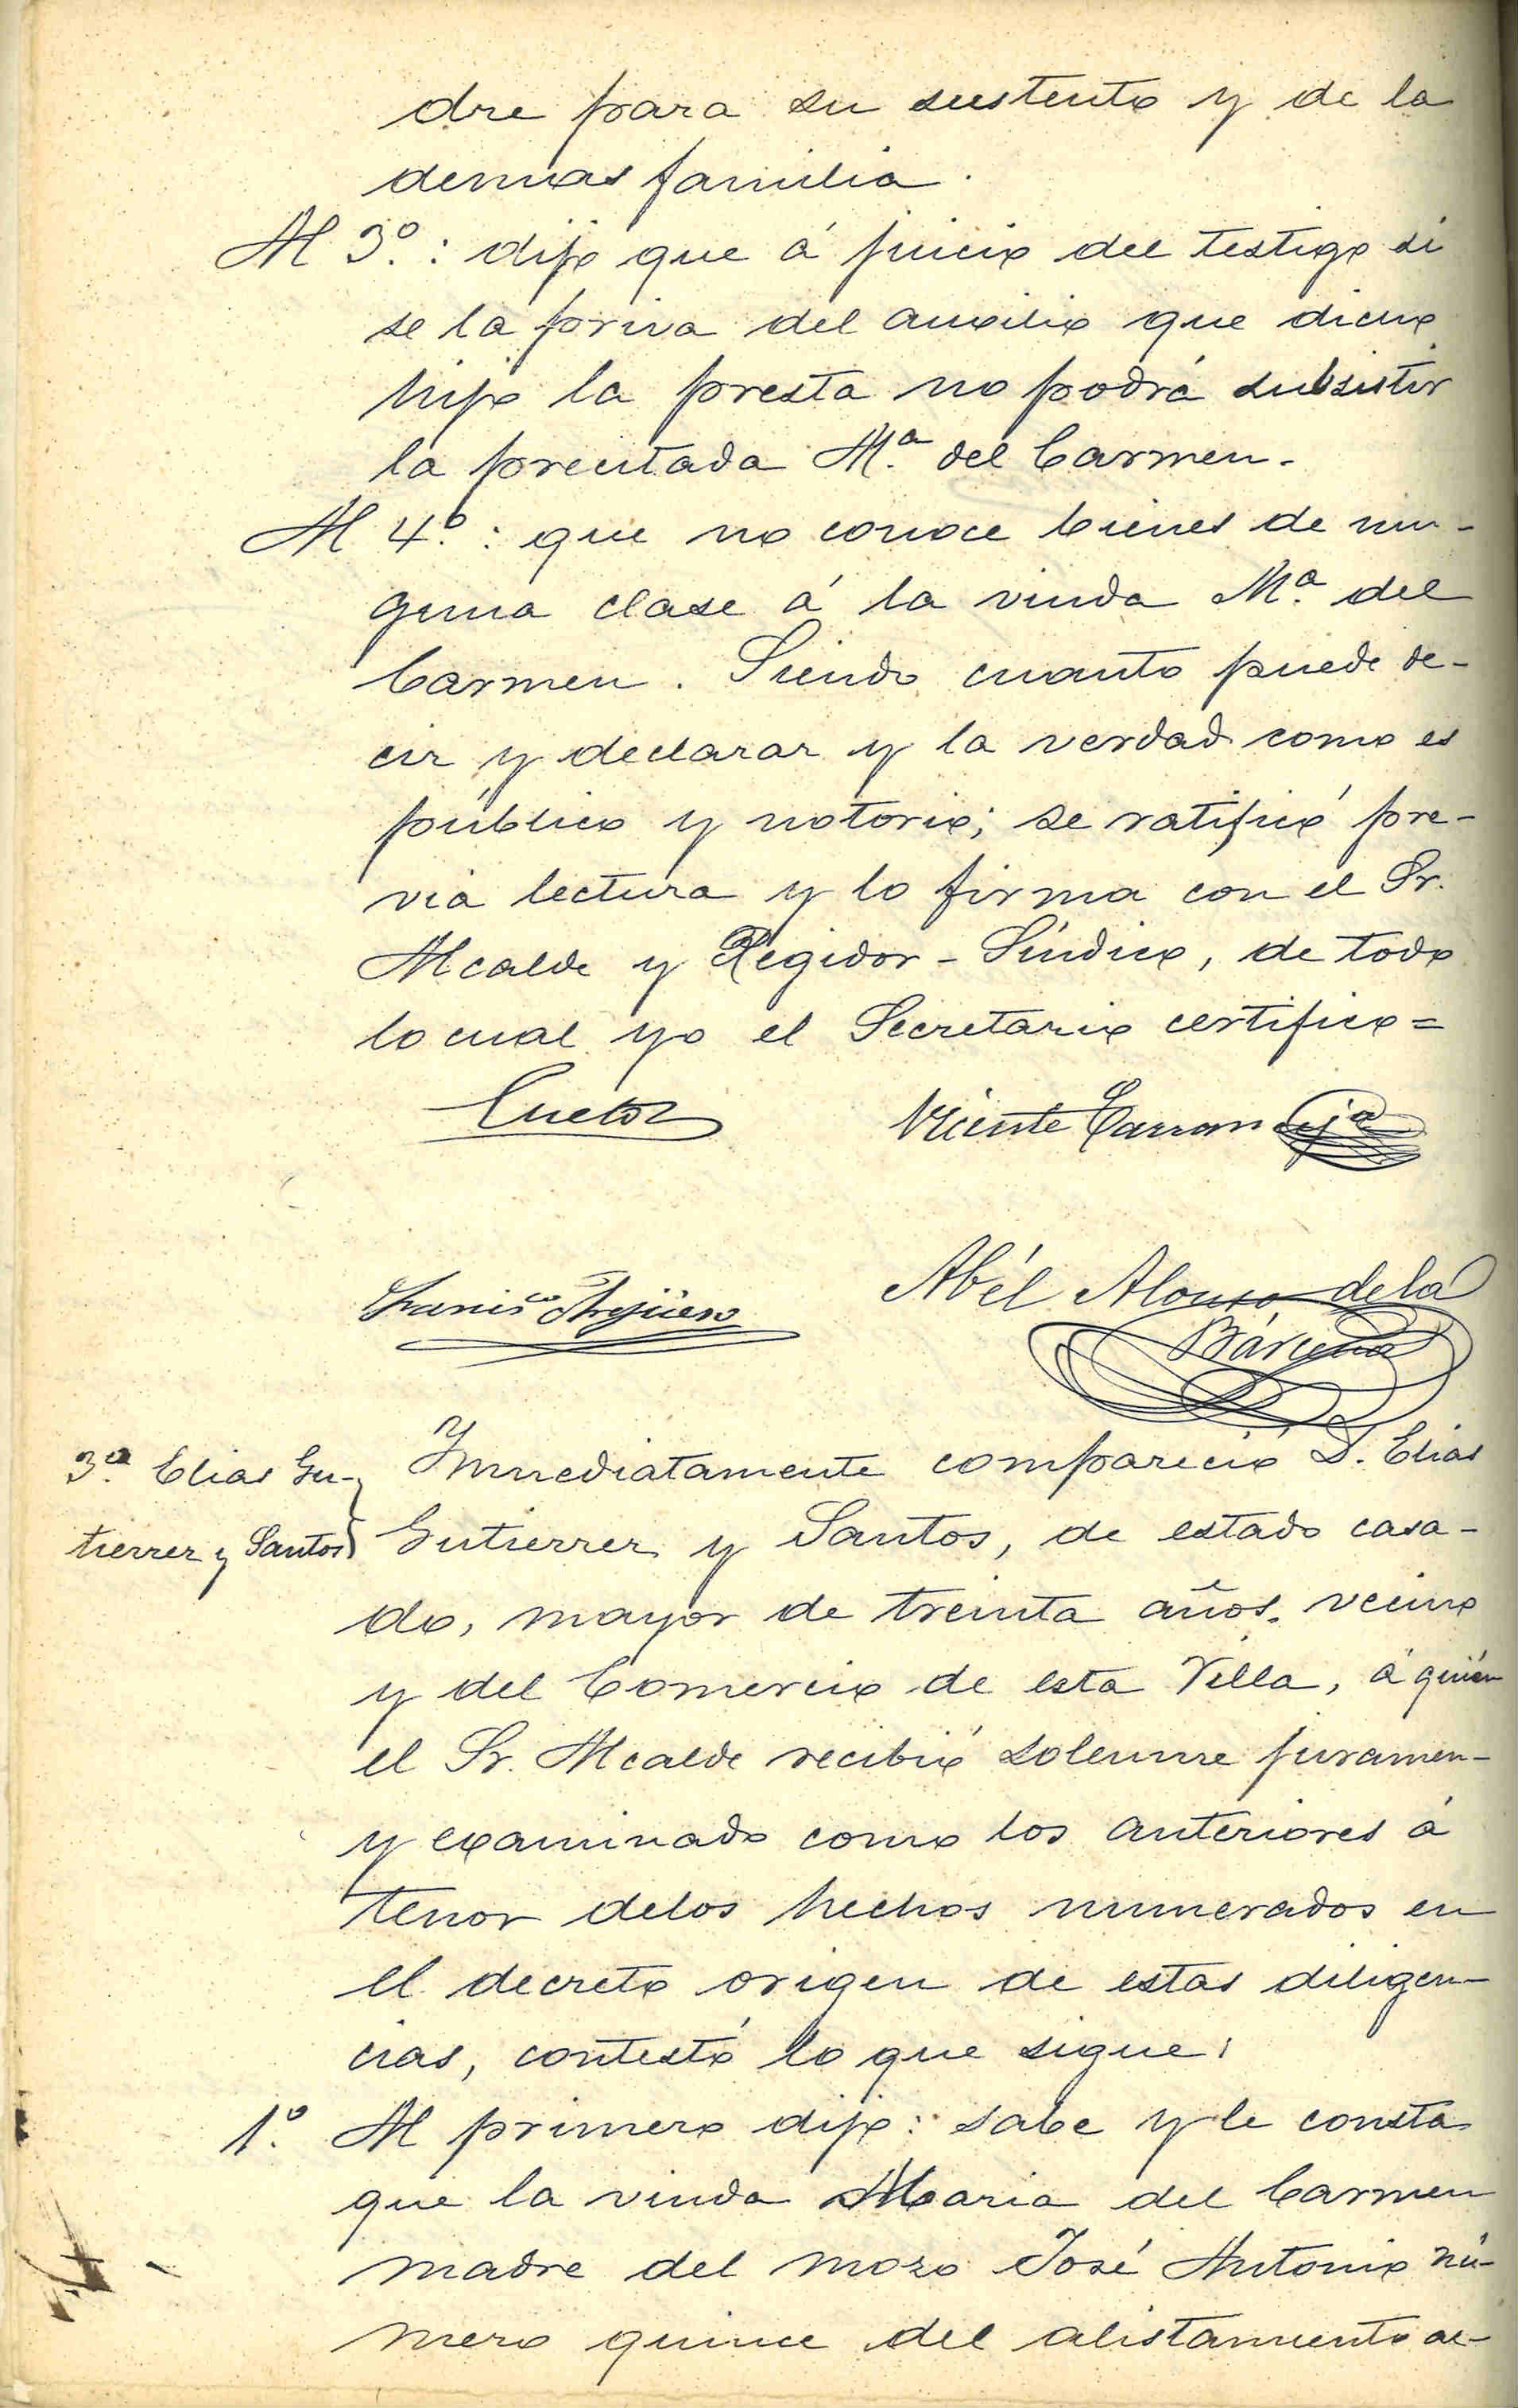 dre para su sustento y de la
demas familia.
Al 3º: dijo que á juicio del testigo si
se la priva del auxilio que dicho
hijo la presta no podrá subsistir
la precitada Mª del Carmen.
Al 4º: que no conoce bienes de nin-
guna clase á la viuda Mª del
Carmen. Siendo cuanto puede de-
cir y declarar y la verdad como es
público y notorio; se ratificó pre-
via lectura y lo firma con el Sr.
Alcalde y Regidor-Síndico, de todo
lo cual yo el Secretario certifico=
Cueto Vicente Carrandi
Abél Alonso de la
Bárcena
3º Elias Gu-
tierrez y Santos
Inmediatamente compareció D. Elias
Gutierrez y Santos, de estado casa-
do, mayor de treinta años, vecino
y del Comercio de esta Villa, á quién
el Sr. Alcalde recibió solemne juramen-
y examinado como los anteriores á
tenor delos hechos numerados en
el decreto origen de estas diligen-
cias, contestó lo que sigue:
1º. Al primero dijo: sabe y le consta
que la viuda Maria del Carmen
madre del mozo José Antonio nú-
mero quince del alistamiento ac-